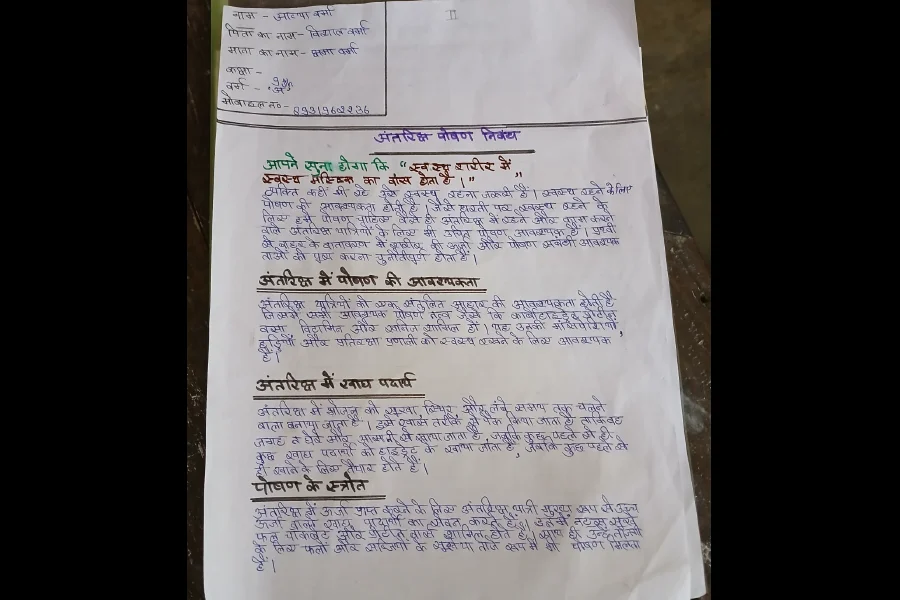 नाम - आराध्या वर्मा
पिता का नाम - विशाल वर्मा
माता का नाम - वर्मा
कक्षा - 9th
वर्ग - 'अ'
मोबाइल न० -
II
अंतरिक्ष पोषण निबंध
आपने सुना होगा कि "स्वस्थ शरीर में
स्वस्थ मस्तिष्क का वास होता है।"
व्यक्ति कहीं भी रहे उसे स्वस्थ रहना जरूरी है। स्वस्थ रहने के लिए
पोषण की आवश्यकता होती है। जैसे धरती पर स्वस्थ रहने के
लिए हमें पोषण चाहिए वैसे ही अंतरिक्ष में रहने और यात्रा करने
वाले अंतरिक्ष यात्रियों के लिए भी उचित पोषण आवश्यक है। पृथ्वी
से बाहर के वातावरण में शरीर की ऊर्जा और पोषण संबंधी आवश्यक
ताओं को पूरा करना चुनौतीपूर्ण होता है।
अंतरिक्ष में पोषण की आवश्यकता
अंतरिक्ष यात्रियों को एक संतुलित आहार की आवश्यकता होती है
जिसमें सभी आवश्यक पोषण तत्व जैसे कि कार्बोहाइड्रेट प्रोटीन
वसा विटामिन और खनिज शामिल हों। यह उनकी मांसपेशियों,
हड्डियों और प्रतिरक्षा प्रणाली को स्वस्थ रखने के लिए आवश्यक
है।
अंतरिक्ष में खाद्य पदार्थ
अंतरिक्ष में भोजन को सूखा, स्थिर, और लंबे समय तक चलने
वाला बनाया जाता है। इसे खास तरीके से पैक किया जाता है ताकि वह
जगह न घेरे और आसानी से खाया जाता है, जबकि कुछ पहले से ही
कुछ खाद्य पदार्थों को हाइड्रेट के खाया जाता है, जबकि कुछ पहले से
ही खाने के लिए तैयार होते हैं।
पोषण के स्त्रोत
अंतरिक्ष में ऊर्जा प्राप्त करने के लिए अंतरिक्ष यात्री मुख्य रूप से उच्च
ऊर्जा वाले खाद्य पदार्थों का सेवन करते हैं। इनमें नट्स सूखे
फल चॉकलेट और प्रोटीन बार्स शामिल होते हैं। साथ ही उन्हें ताजगी
के लिए फलों और सब्जियों के सूखे या ताजे रूप में भी पोषण मिलता
है।